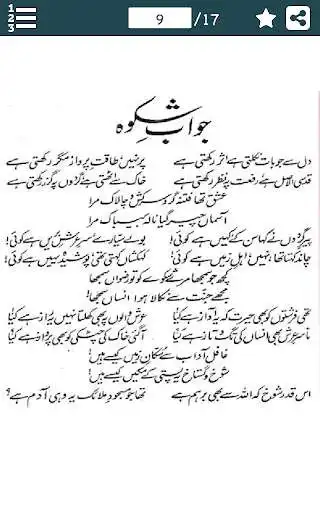 1
2
3
9 /17
جوابِ شکوہ
دل سے جو بات نکلتی ہے اثر رکھتی ہے پر نہیں طاقتِ پرواز مگر رکھتی ہے
قدسی الاصل ہے رفعت پہ نظر رکھتی ہے خاک سے اٹھتی ہے گردوں پہ گزر رکھتی ہے
عشق تھا فتنہ گر و سرکش و چالاک مرا
آسماں چیر گیا نالۂ بیباک مرا
پیرِ گردوں نے کہا سن کے کہیں ہے کوئی! بولے سیارے سرِ عرشِ بریں ہے کوئی!
چاند کہتا تھا نہیں اہلِ زمیں ہے کوئی! کہکشاں کہتی تھی پوشیدہ یہیں ہے کوئی!
کچھ جو سمجھا مرے شکوے کو تو رضواں سمجھا
مجھے جنت سے نکالا ہوا انساں سمجھا!
تھی فرشتوں کو بھی حیرت کہ یہ آواز ہے کیا! عرش والوں پہ بھی کھلتا نہیں یہ راز ہے کیا!
تا سرِ عرش بھی انساں کی تگ و تاز ہے کیا! آ گئی خاک کی چٹکی کو بھی پرواز ہے کیا!
غافل آداب سے سکانِ زمیں کیسے ہیں!
شوخ و گستاخ یہ پستی کے مکیں کیسے ہیں!
اس قدر شوخ کہ اللہ سے بھی برہم ہے تھا جو مسجودِ ملائک یہ وہی آدم ہے؟